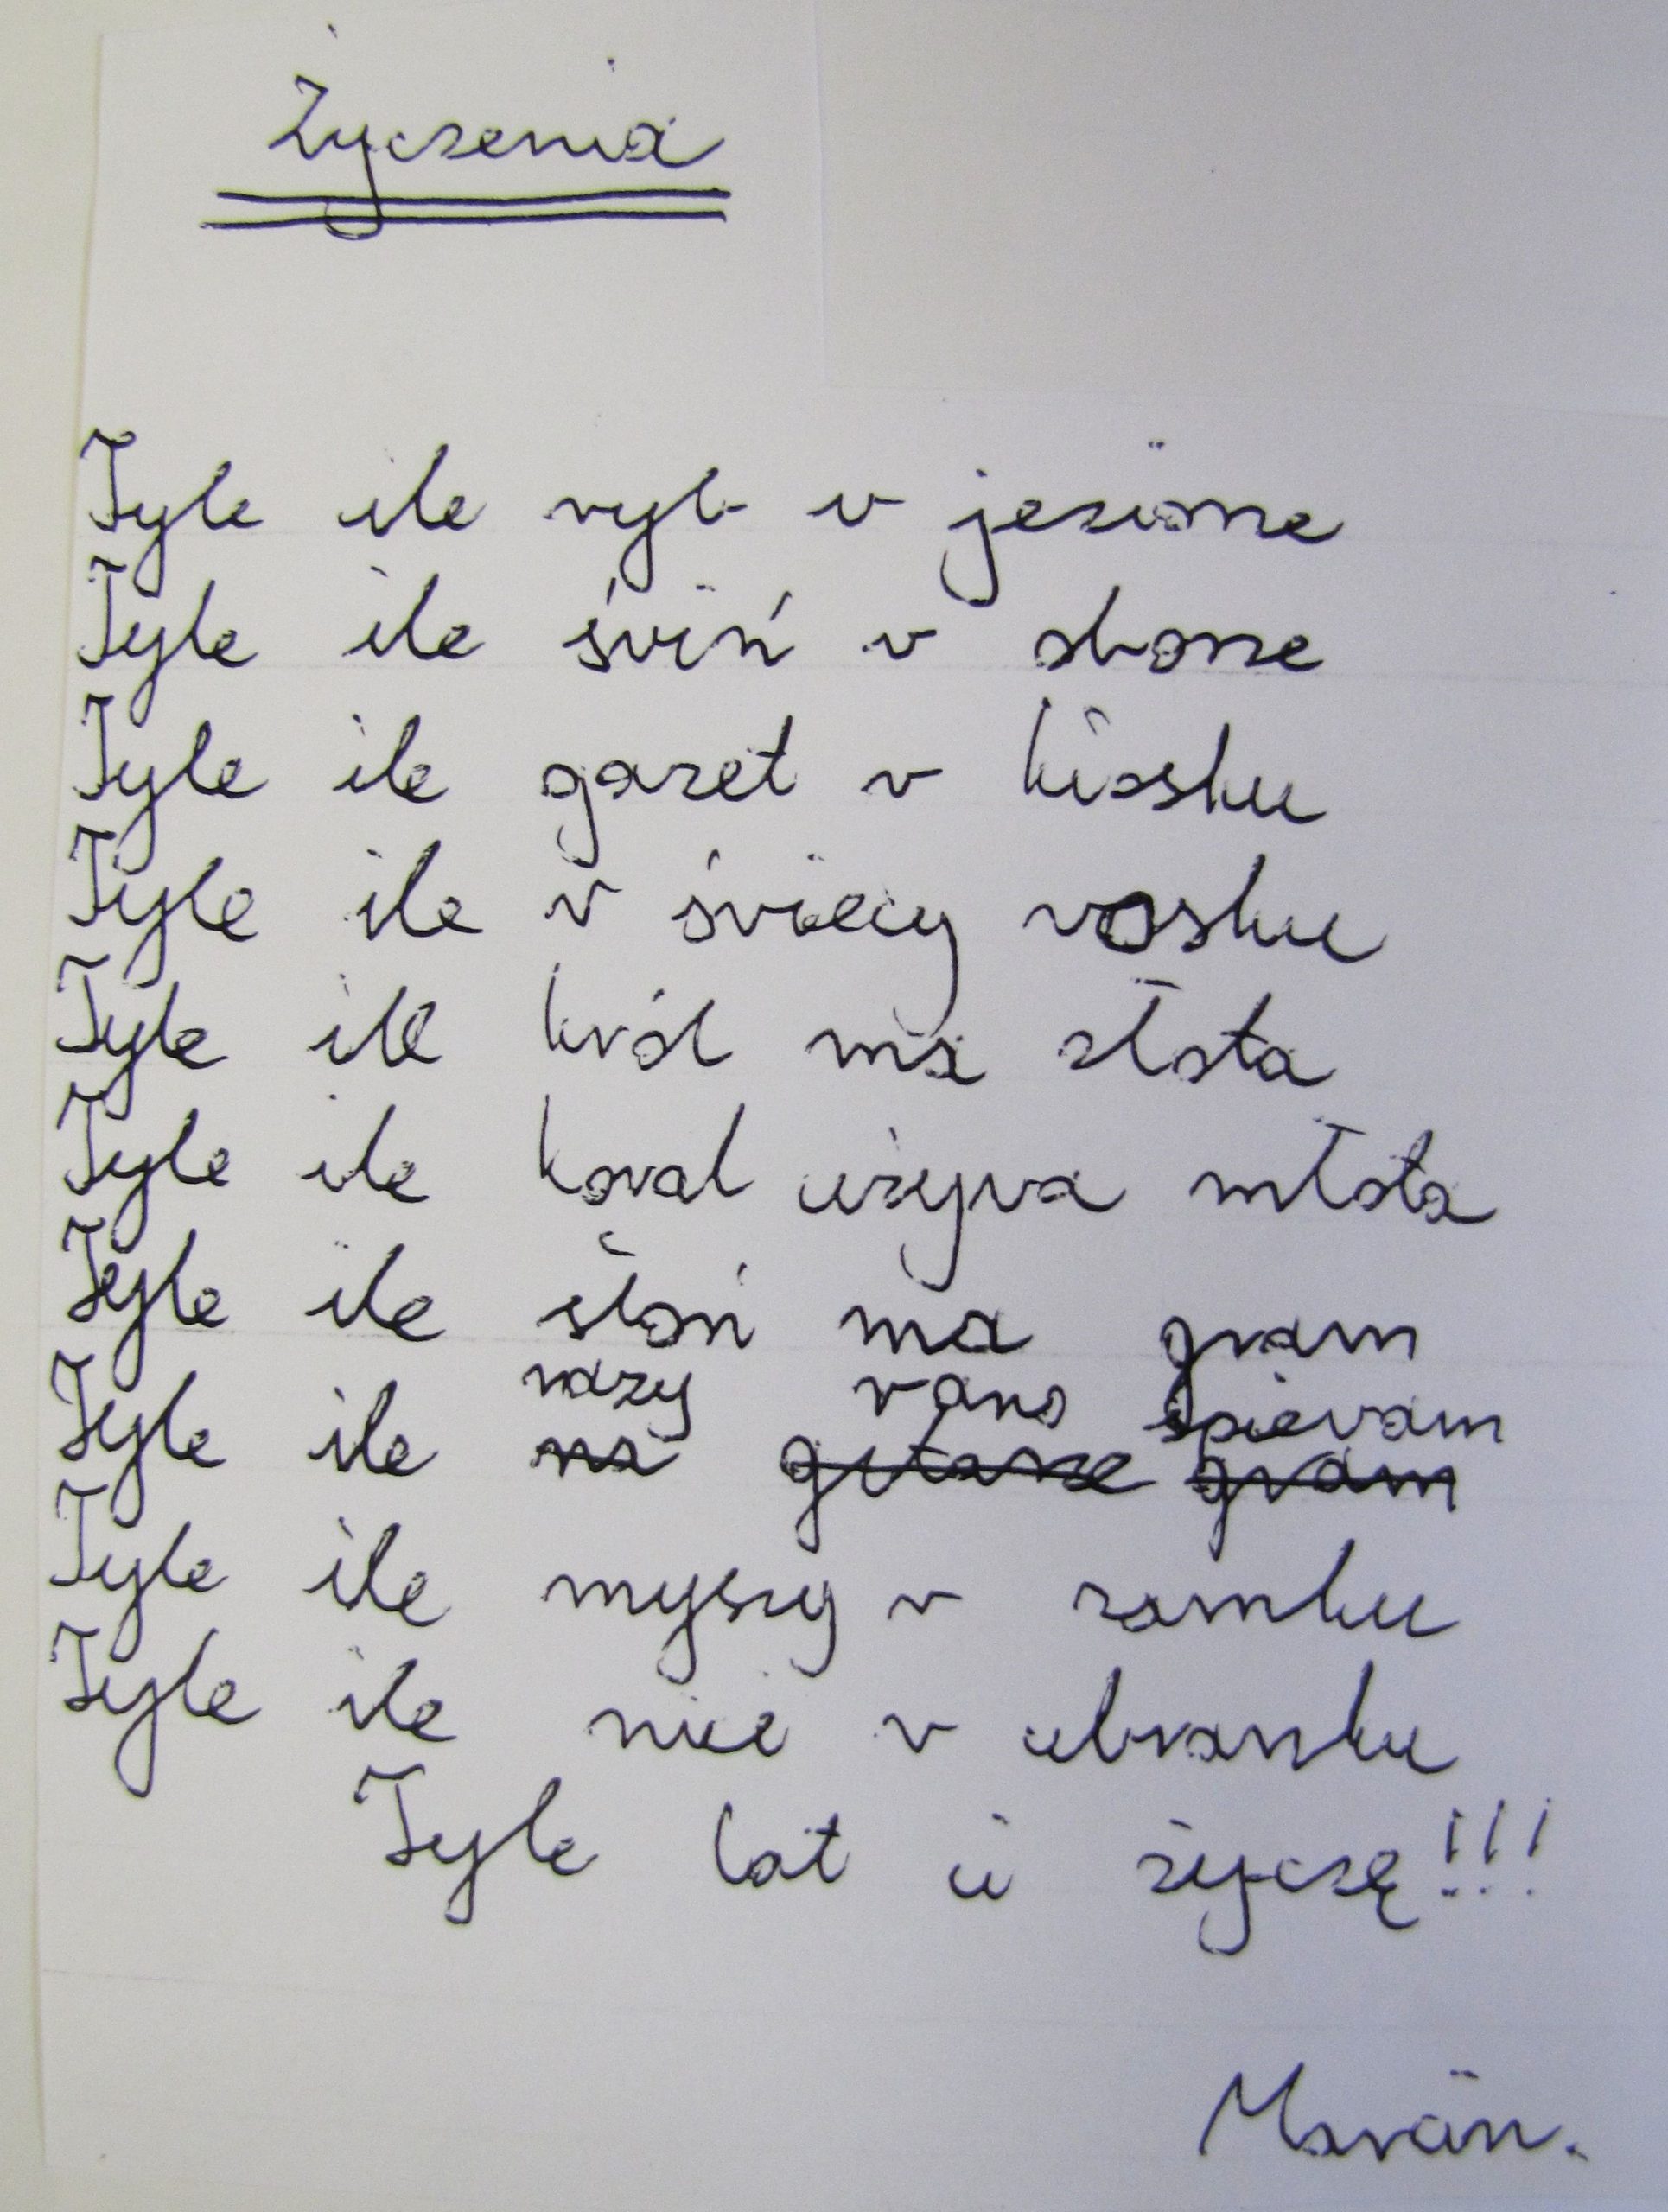 Życzenia
Tyle ile ryb v jeziorze
Tyle ile śviń v oborze
Tyle ile gazet v kiosku
Tyle ile v śviecy vosku
Tyle ile król ma złota
Tyle ile koval używa młota
Tyle ile słoń ma gram
razy rano śpievam
Tyle ile na gitarze gram
Tyle ile myszy v zamku
Tyle ile nici v ubranku
Tyle lat ci życzę!!!
Marian.